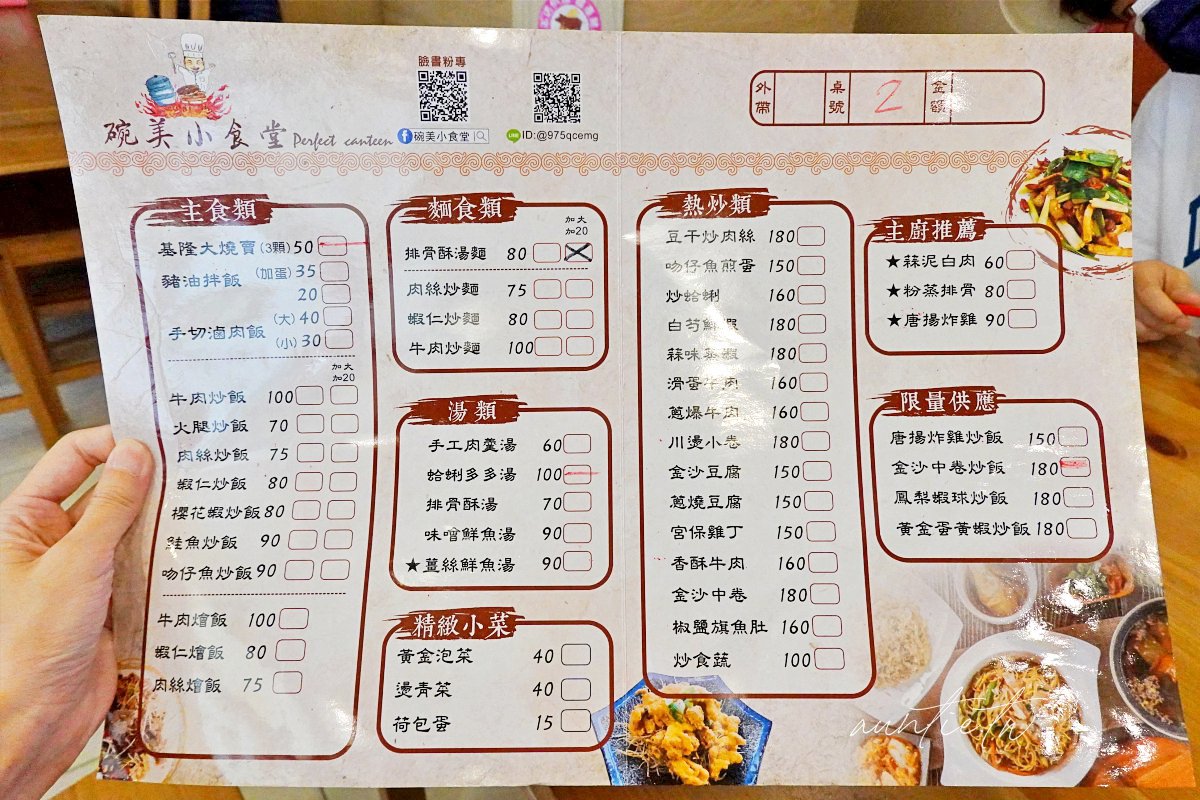 碗美小食堂 Perfect canteen
臉書粉專
碗美小食堂
LINE ID:@975qcemg
外帶
桌號 2
金額
主食類
基隆大燒賣(3顆) 50
豬油拌飯 (加蛋) 35
20
手切滷肉飯 (大) 40
(小) 30
加大
加20
牛肉炒飯 100
火腿炒飯 70
肉絲炒飯 75
蝦仁炒飯 80
櫻花蝦炒飯 80
鮭魚炒飯 90
吻仔魚炒飯 90
牛肉燴飯 100
蝦仁燴飯 80
肉絲燴飯 75
麵食類
加大
加20
排骨酥湯麵 80
肉絲炒麵 75
蝦仁炒麵 80
牛肉炒麵 100
湯類
手工肉羹湯 60
蛤蜊多多湯 100
排骨酥湯 70
味噌鮮魚湯 90
★薑絲鮮魚湯 90
精緻小菜
黃金泡菜 40
燙青菜 40
荷包蛋 15
熱炒類
豆干炒肉絲 180
吻仔魚煎蛋 150
炒蛤蜊 160
白芍鮮蝦 180
蒜味蒸蝦 180
滑蛋牛肉 160
蔥爆牛肉 160
川燙小卷 180
金沙豆腐 150
蔥燒豆腐 150
宮保雞丁 150
香酥牛肉 160
金沙中卷 180
椒鹽旗魚肚 160
炒食蔬 100
主廚推薦
★蒜泥白肉 60
★粉蒸排骨 80
★唐揚炸雞 90
限量供應
唐揚炸雞炒飯 150
金沙中卷炒飯 180
鳳梨蝦球炒飯 180
黃金蛋黃蝦炒飯 180